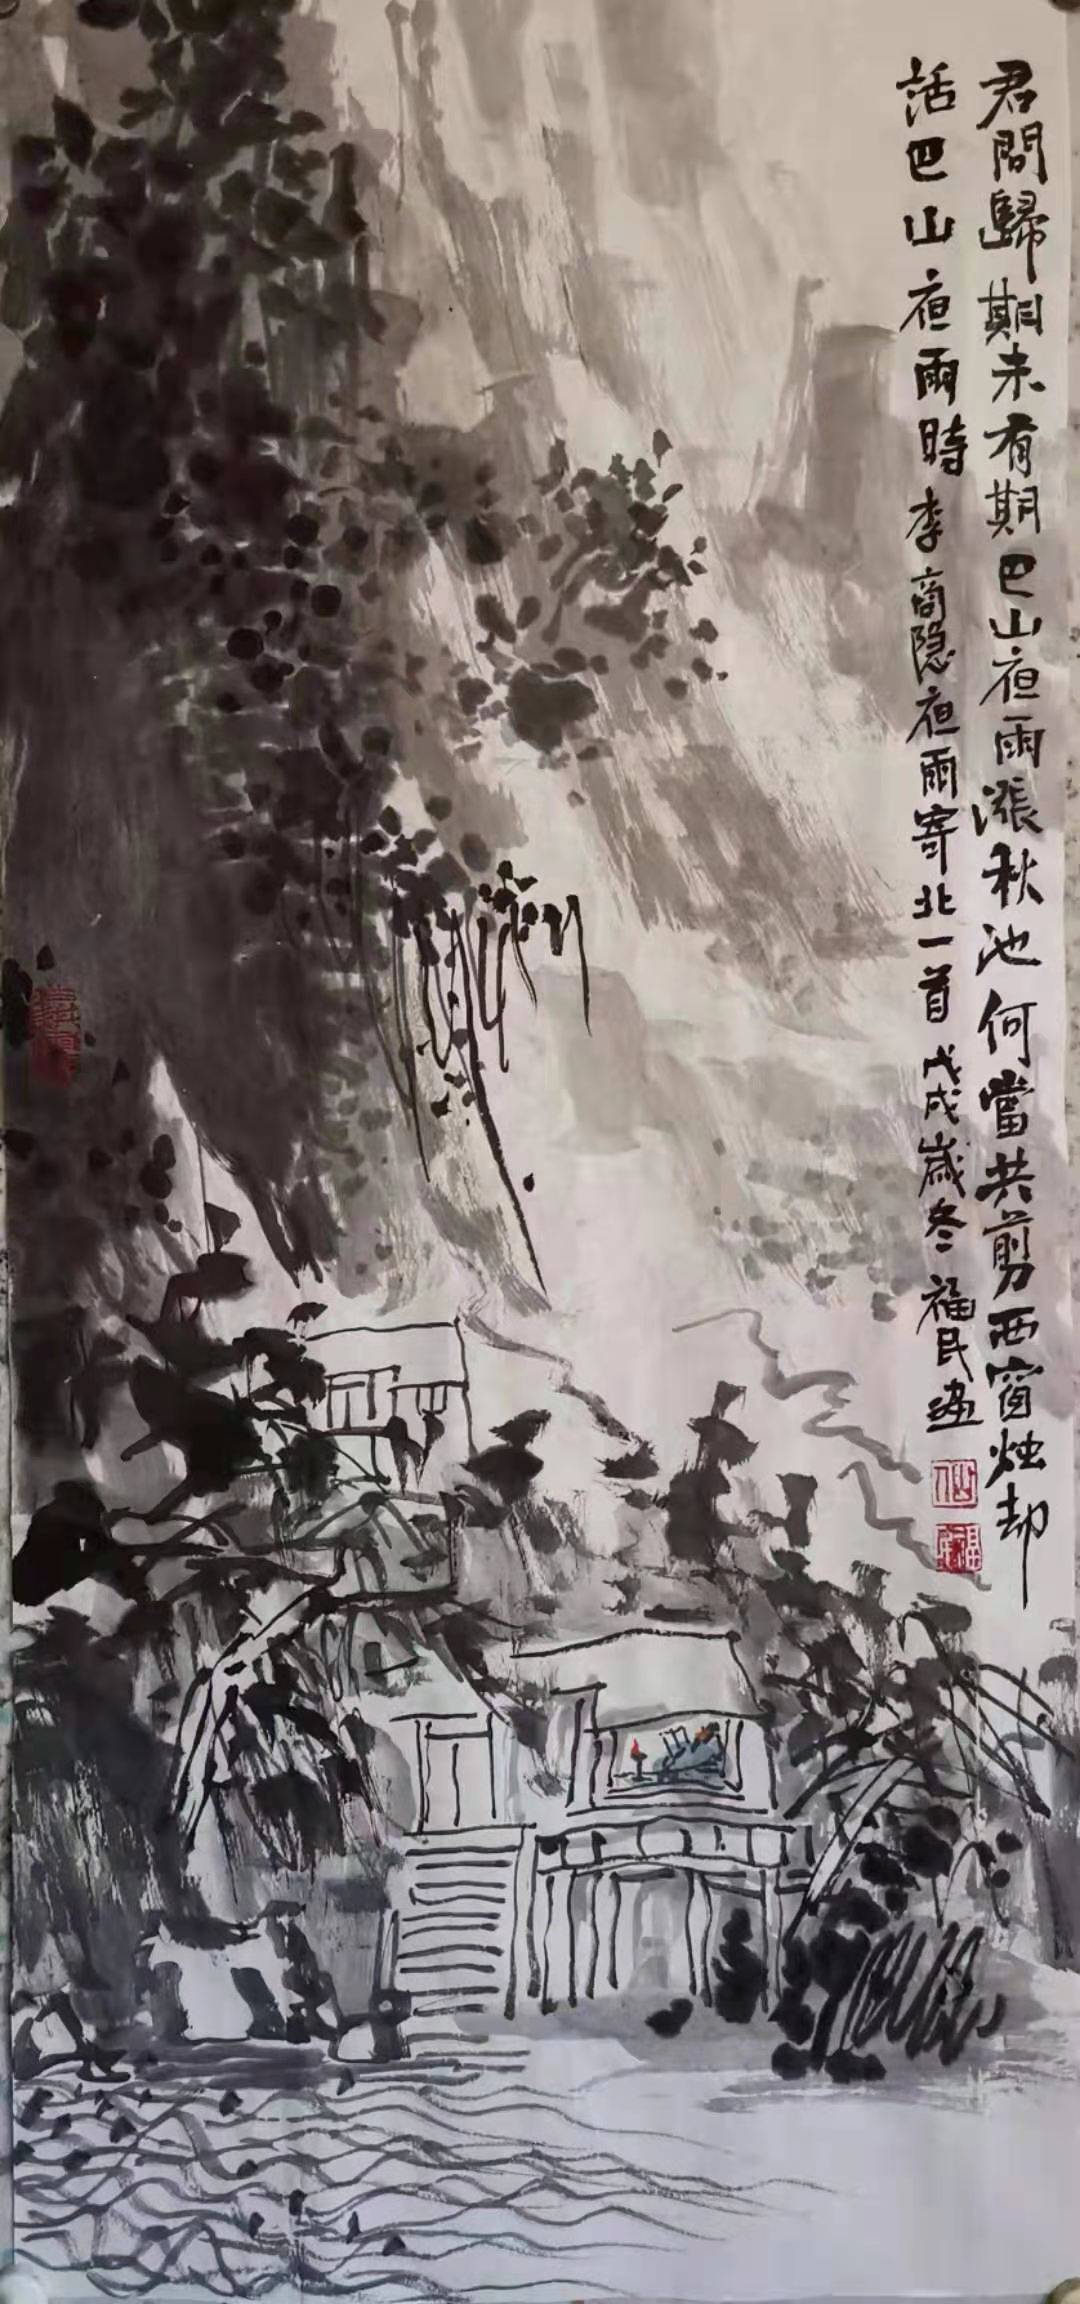 君問歸期未有期巴山夜雨漲秋池何當共剪西窗烛却
話巴山夜雨時李商隐夜雨寄北一首戊戌歲冬福民畫